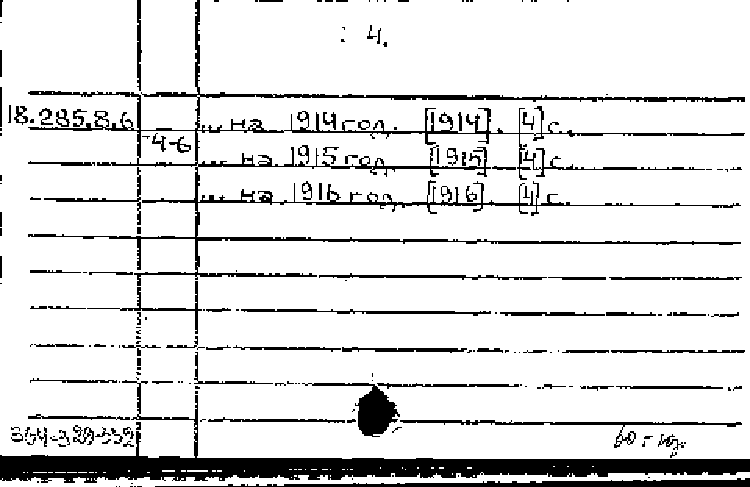 : 4.
18.285.8.6 ... на 1914 год. [1914]. [4] с.
-4-6
... на 1915 год. [1915]. [4] с.
... на 1916 год. [1916]. [4] с.